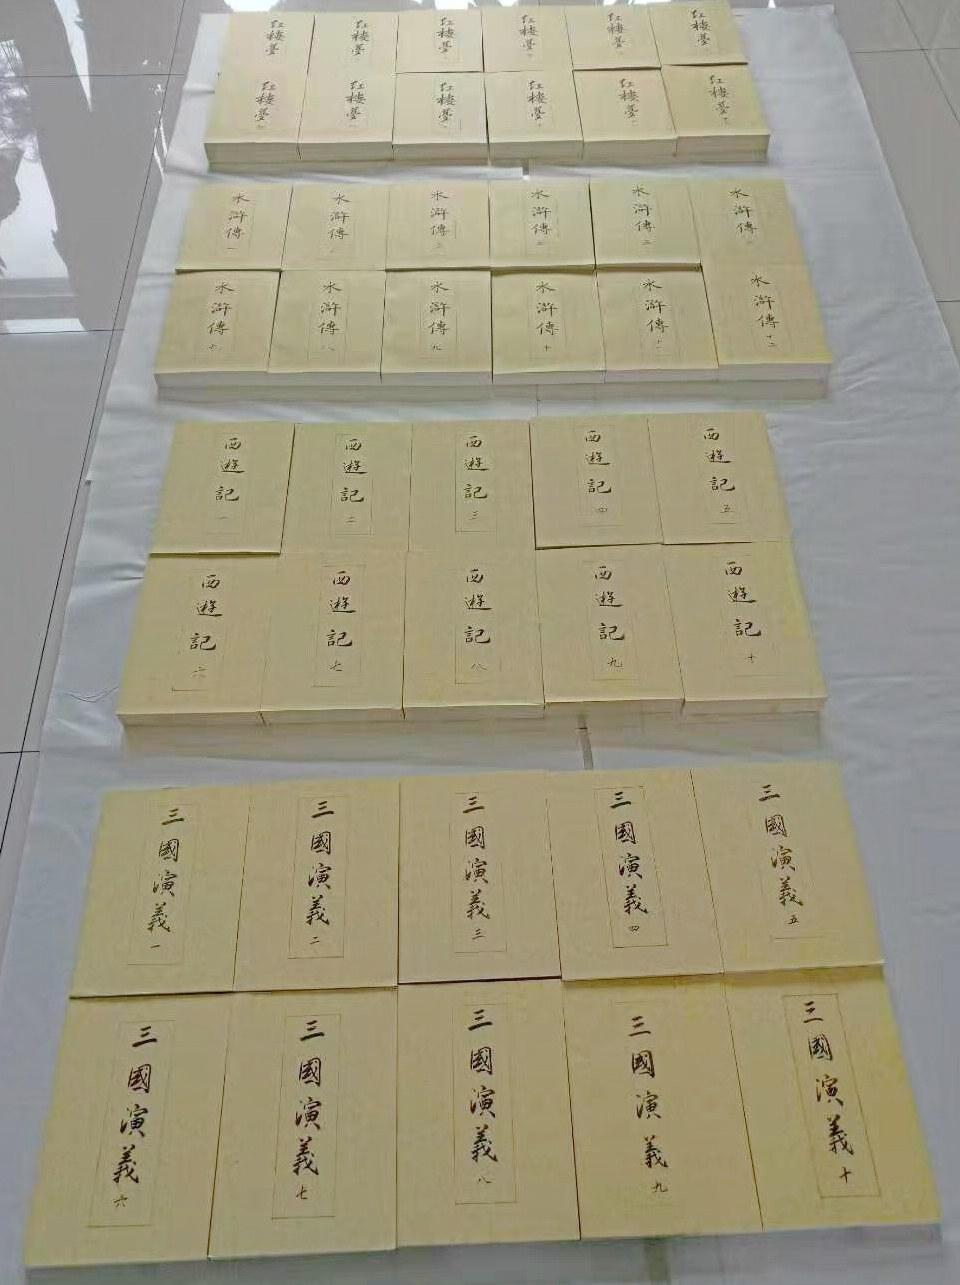 红樓夢
红樓夢
红樓夢
红樓夢
红樓夢
红樓夢
红樓夢
红樓夢
红樓夢
红樓夢
红樓夢
红樓夢
水滸傳 一
水滸傳
水滸傳 三
水滸傳
水滸傳
水滸傳
水滸傳 七
水滸傳 八
水滸傳 九
水滸傳 十
水滸傳 十一
水滸傳 十二
西遊記 一
西遊記 二
西遊記 三
西遊記 四
西遊記 五
西遊記 六
西遊記 七
西遊記 八
西遊記 九
西遊記 十
三國演義 一
三國演義 二
三國演義 三
三國演義 四
三國演義 五
三國演義 六
三國演義 七
三國演義 八
三國演義 九
三國演義 十